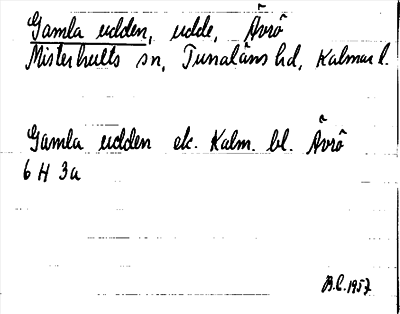 Gamla udden, udde, Ävrö
Misterhults sn, Tunaläns hd, Kalmar l.
Gamla udden ek. Kalm. bl. Ävrö
6 H 3a
B.C. 1957